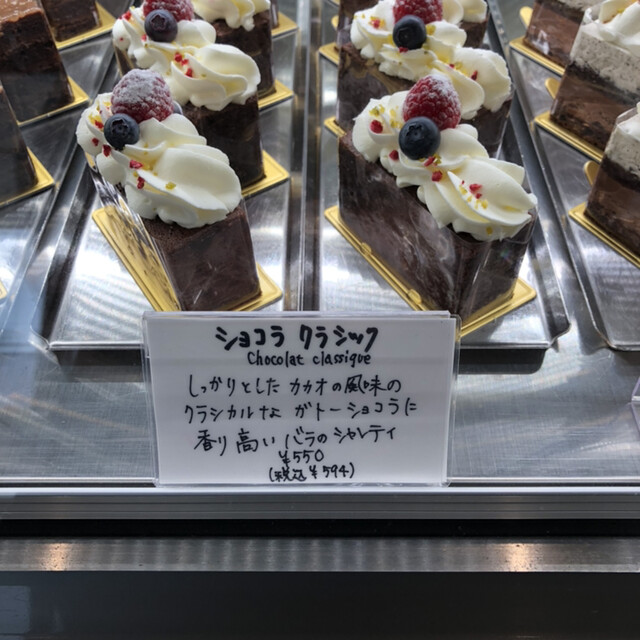 ショコラ クラシック
Chocolat classique
しっかりとした カカオの風味の
クラシカルな ガトーショコラに
香り高い バラのシャンティ
¥550
(税込¥594)